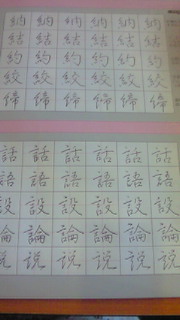 納 納 納 納 納 納
結 結 結 結 結 結
約 約 約 約 約 約
絞 絞 絞 絞 絞 絞
締 締 締 締 締 締
話 話 話 話 話 話
語 語 語 語 語
設 設 設 設 設 設
論 論 論 論 論 論
説 説 説 説 説 説